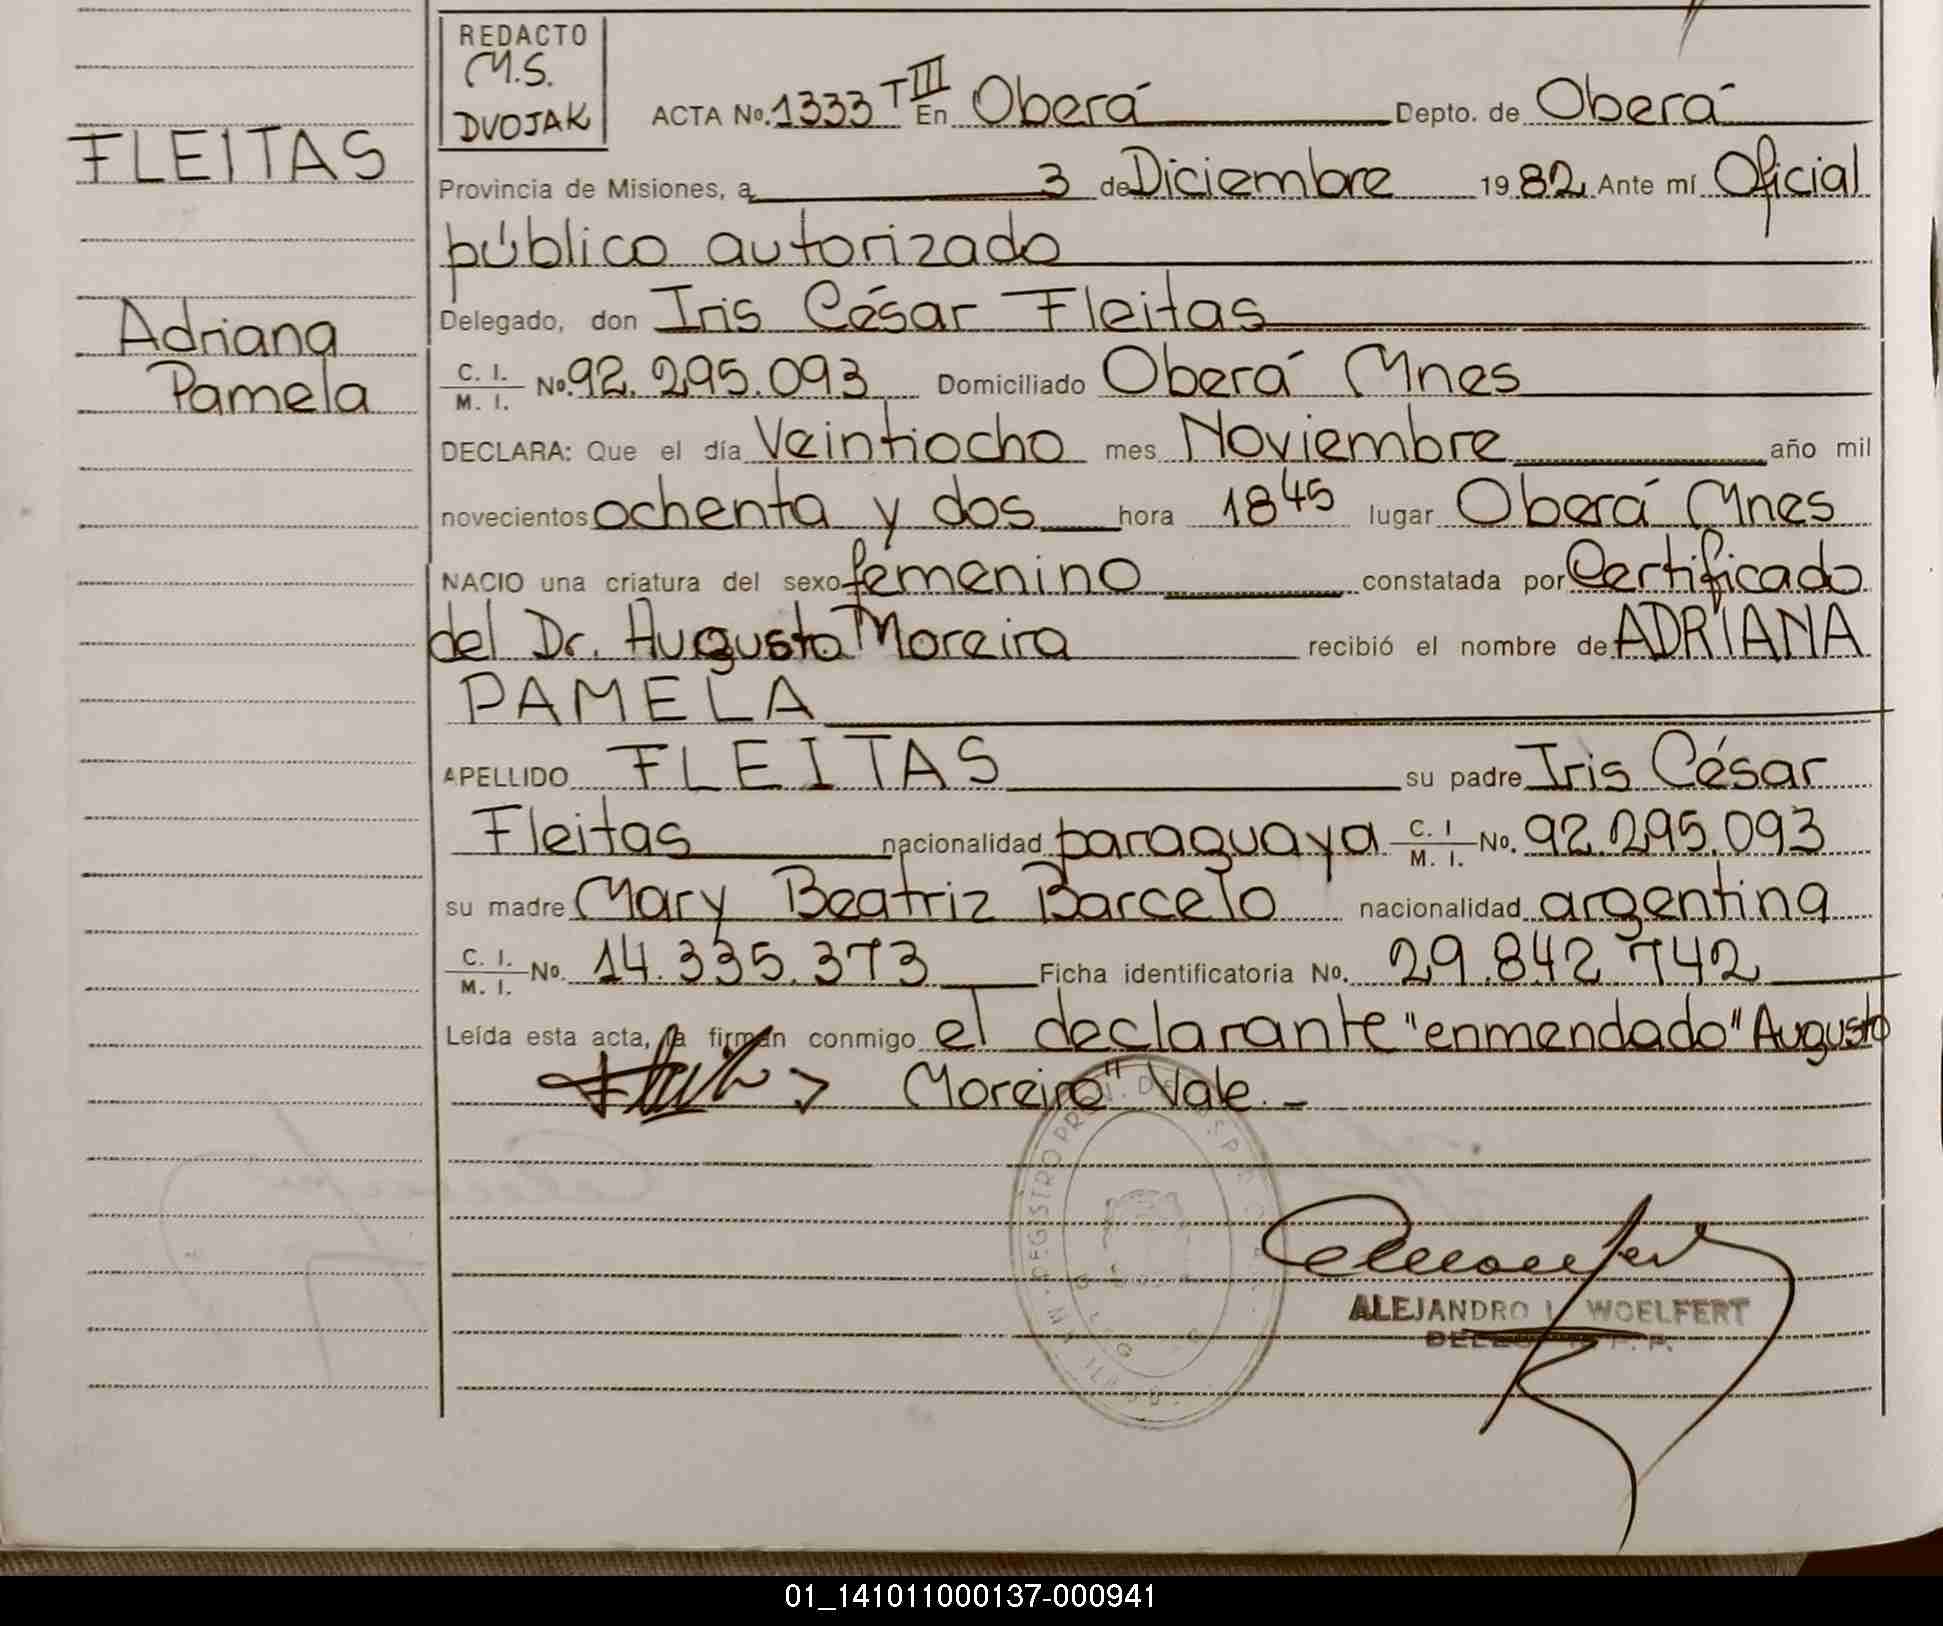 REDACTO
M.S.
DVOJAK
FLEITAS
Adriana
Pamela
ACTA No. 1333 T III En Oberá Depto. de Oberá
Provincia de Misiones, a 3 de Diciembre 1982 Ante mí Oficial
público autorizado
Delegado, don Iris César Fleitas
C. I. / M. I. No. 92.295.093 Domiciliado Oberá Mnes
DECLARA: Que el día Veintiocho mes Noviembre año mil
novecientos ochenta y dos hora 18 45 lugar Oberá Mnes
NACIO una criatura del sexo femenino constatada por Certificado
del Dr. Augusto Moreira recibió el nombre de ADRIANA
PAMELA
APELLIDO FLEITAS su padre Iris César
Fleitas nacionalidad paraguaya C. I / M. I. No. 92.295.093
su madre Mary Beatriz Barcelo nacionalidad argentina
C. I. / M. I. No. 14.335.373 Ficha identificatoria No. 29.842.742
Leída esta acta, la firman conmigo el declarante "enmendado" Augusto
Moreira" Vale.-
REGISTRO PROV. DE LAS PERSONAS
ALEJANDRO L. WOELFERT
01_141011000137-000941